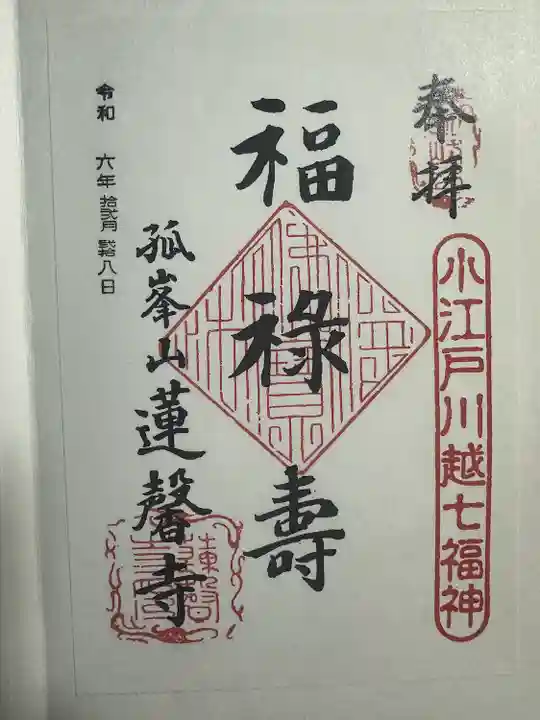 奉拝
小江戸川越七福神
福禄壽
孤峯山蓮馨寺
令和 六年 拾弐月 弐拾八日